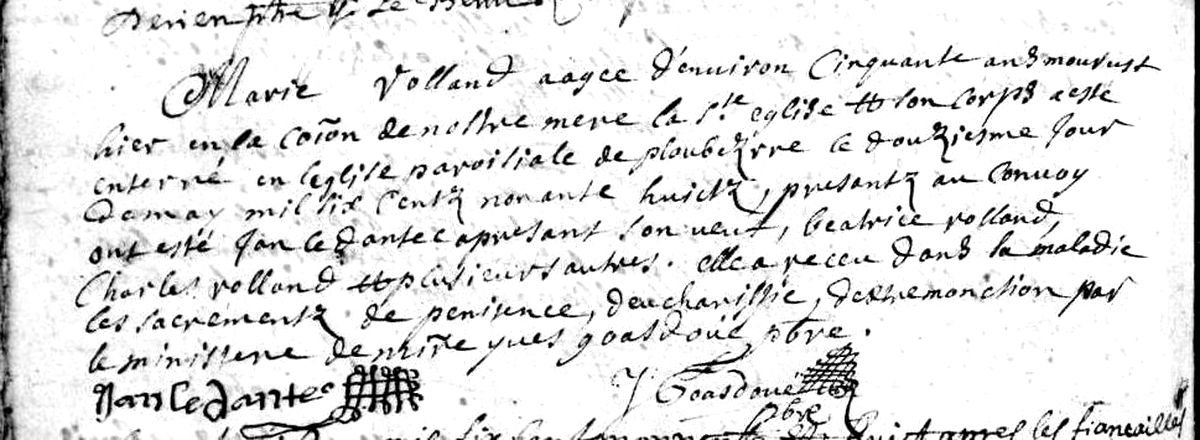 Derien pbre
Marie Rolland aagee d'environ Cinquante ans mourust
hier en la coion de nostre mere la Ste eglise et son corps a esté
enterré en l'eglise paroissiale de ploubezrre le douziesme Jour
de may mil six Centz nonante huictz, presantz au Convoy
ont esté Jan le dantec apresant son veuf, beatrice rolland,
Charles rolland et plusieurs autres. elle a receu dans sa maladie
les sacrementz de penitence, d'eucharistie, d'extremonction par
le ministere de mire yves goasdoüé pbre.
Jan le dantec
Y Goasdoüé
pbre
mil six Cent apres les fiancailles